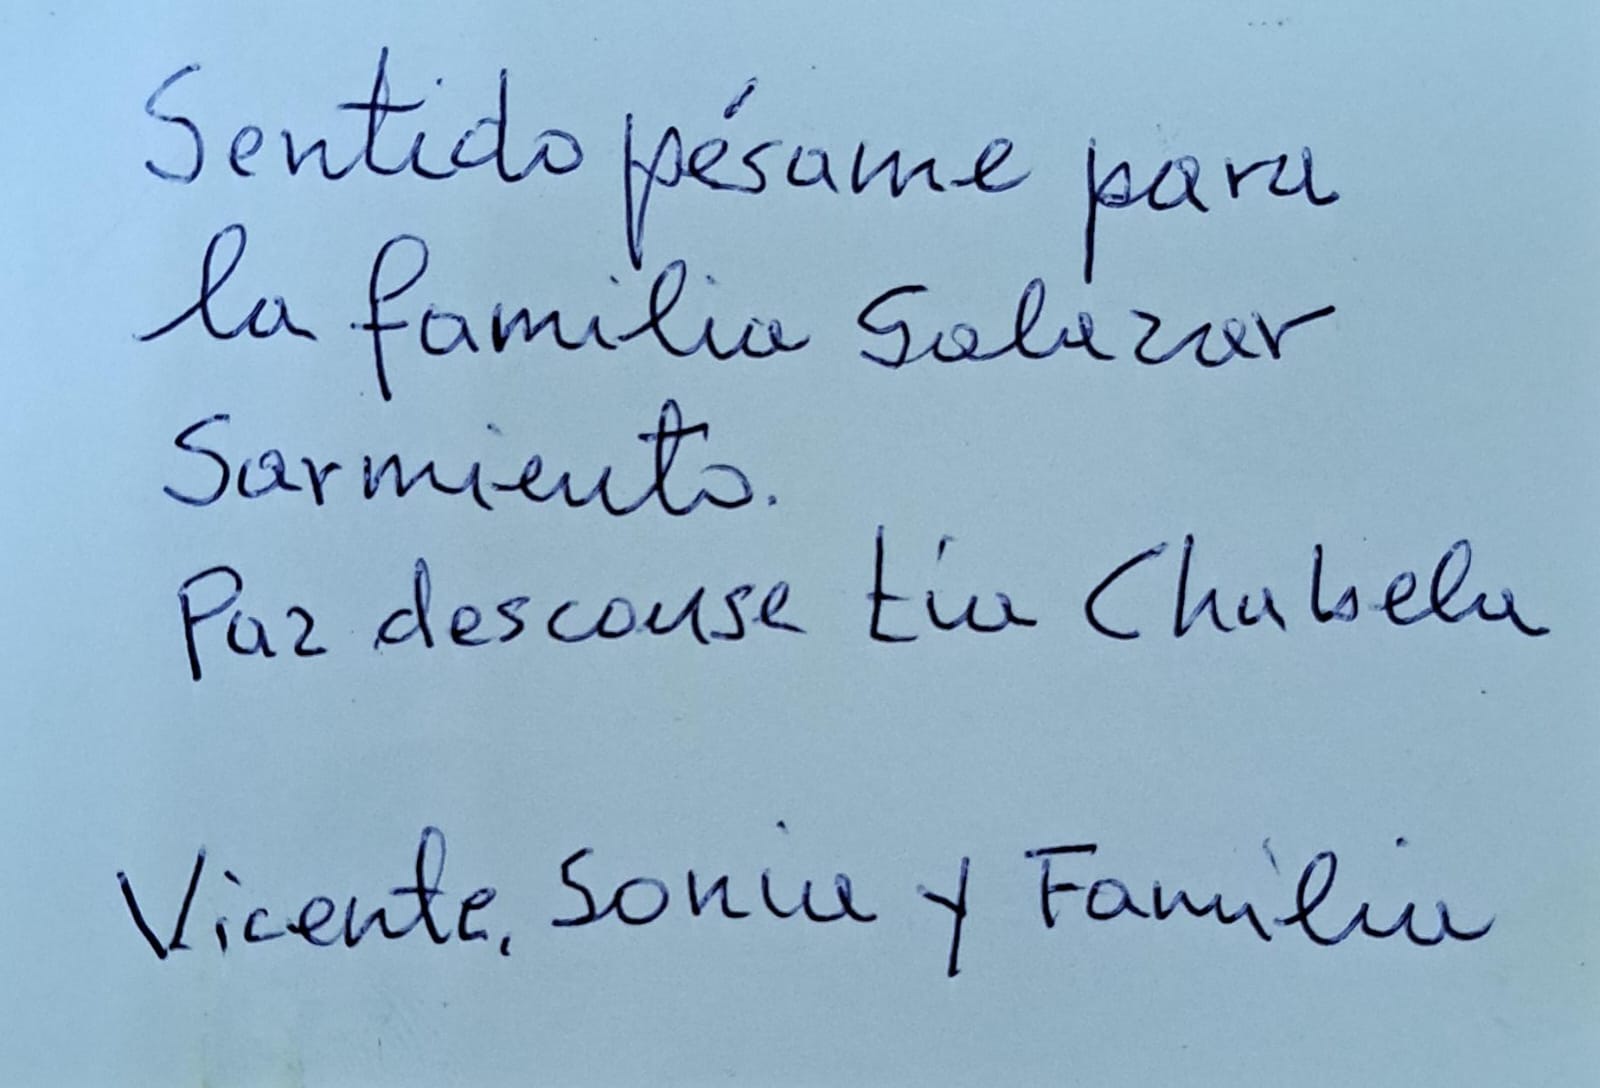 Sentido pésame para
la familia Salazar
Sarmiento.
Paz descanse tía Chabela
Vicente, Sonia y Familia